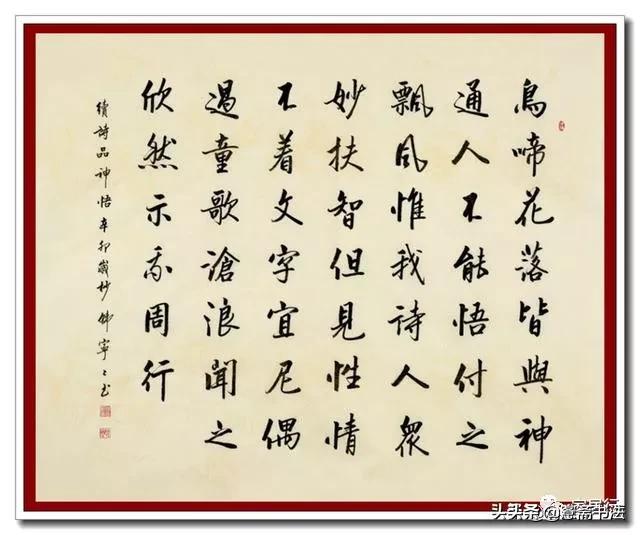 鳥啼花落皆與神
通人不能悟付之
飄風惟我詩人眾
妙扶智但見性情
不着文字宣尼偶
過童歌滄浪聞之
欣然示我周行
續詩品神悟辛卯歲杪韩寧〻书
头条 斋书法